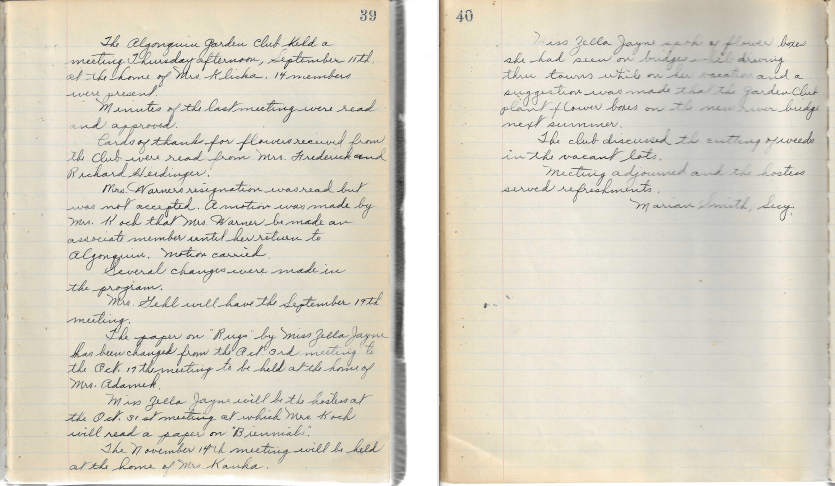 39
The Algonquin Garden Club held a
meeting Thursday afternoon, September 11th.
at the home of Mrs. Klicka. 14 members
were present.
Minutes of the last meeting were read
and approved.
Cards of thanks for flowers received from
the Club were read from Mrs. Frederick and
Richard Herdinger.
Mrs. Warners resignation was read but
was not accepted. A motion was made by
Mrs. Koch that Mrs. Warner be made an
associate member until her return to
Algonquin. Motion carried.
Several changes were made in
the program.
Mrs. Gehl will have the September 19th
meeting.
The paper on "Rugs" by Miss Zella Jayne
has been changed from the Oct. 3rd meeting to
the Oct. 17 the meeting to be held at the home of
Mrs. Adamek.
Miss Zella Jayne will be the hostess at
the Oct. 31st meeting at which Mrs. Koch
will read a paper on "Biennials".
The November 14th meeting will be held
at the home of Mrs. Kanka.
40
Miss Zella Jayne spoke of flower boxes
she had seen on bridges while driving
thru towns while on her vacation and a
suggestion was made that the Garden Club
plant flower boxes on the new river bridge
next summer.
The club discussed the cutting of weeds
in the vacant lots.
Meeting adjourned and the hostess
served refreshments.
Marian Smith, Secy.